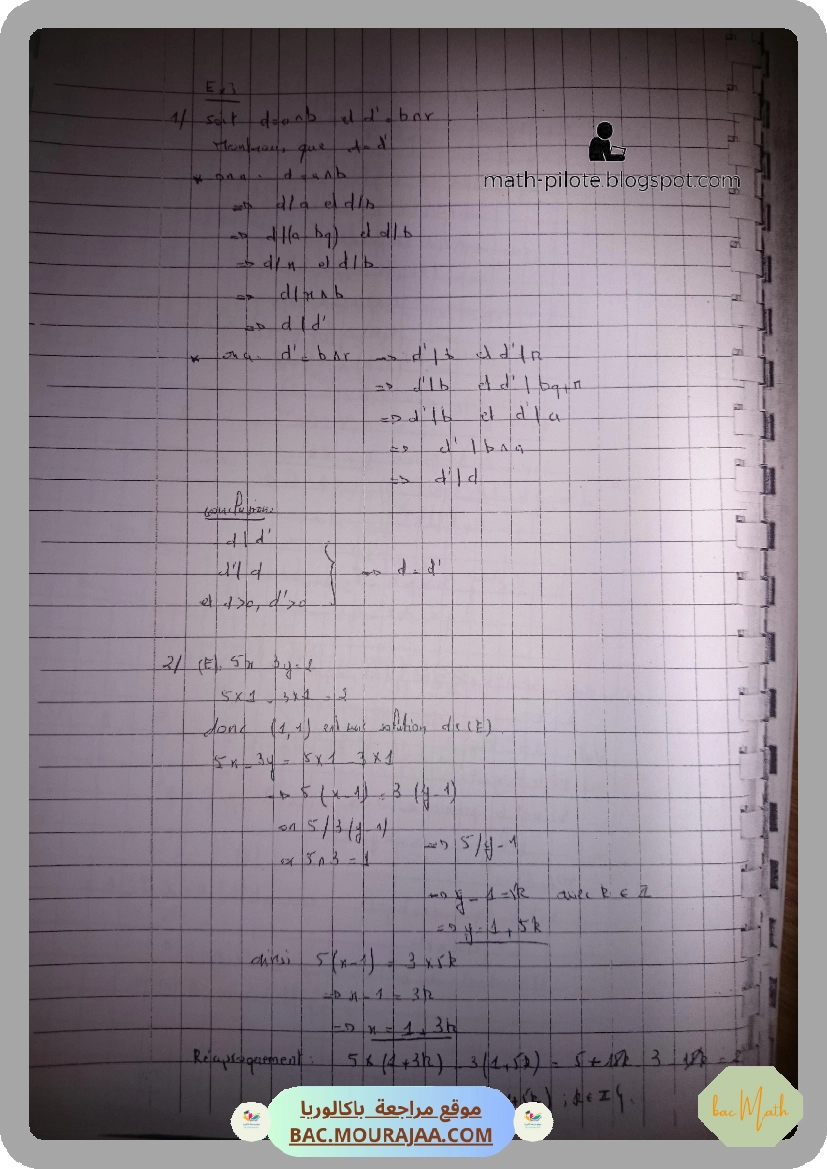 Ex3
1/ Soit d=a∧b et d'=b∧r
Montrons que d=d'
* on a. d=a∧b
⇒ d/a et d/b
⇒ d/(a-bq) et d/b
⇒ d/r et d/b
⇒ d/r∧b
⇒ d/d'
* on a. d'=b∧r ⇒ d'/b et d'/r
⇒ d'/b et d'/bq+r
⇒ d'/b et d'/a
⇒ d'/b∧a
⇒ d'/d
conclusion:
d/d'
d'/d
et d>0, d'>0
⇒ d=d'
2/ (E): 5x-3y=2
5×1-3×1=2
donc (1,1) est une solution de (E)
5x-3y=5×1-3×1
⇒ 5(x-1)=3(y-1)
on 5/3(y-1)
or 5∧3=1
⇒ 5/y-1
⇒ y-1=5k avec k∈Z
⇒ y=1+5k
ainsi 5(x-1)=3×5k
⇒ x-1=3k
⇒ x=1+3k
Réciproquement: 5×(1+3k)-3(1+5k)=5+15k-3-15k=2
; k∈Z}.
math-pilote.blogspot.com
موقع مراجعة باكالوريا
BAC.MOURAJAA.COM
bac Math